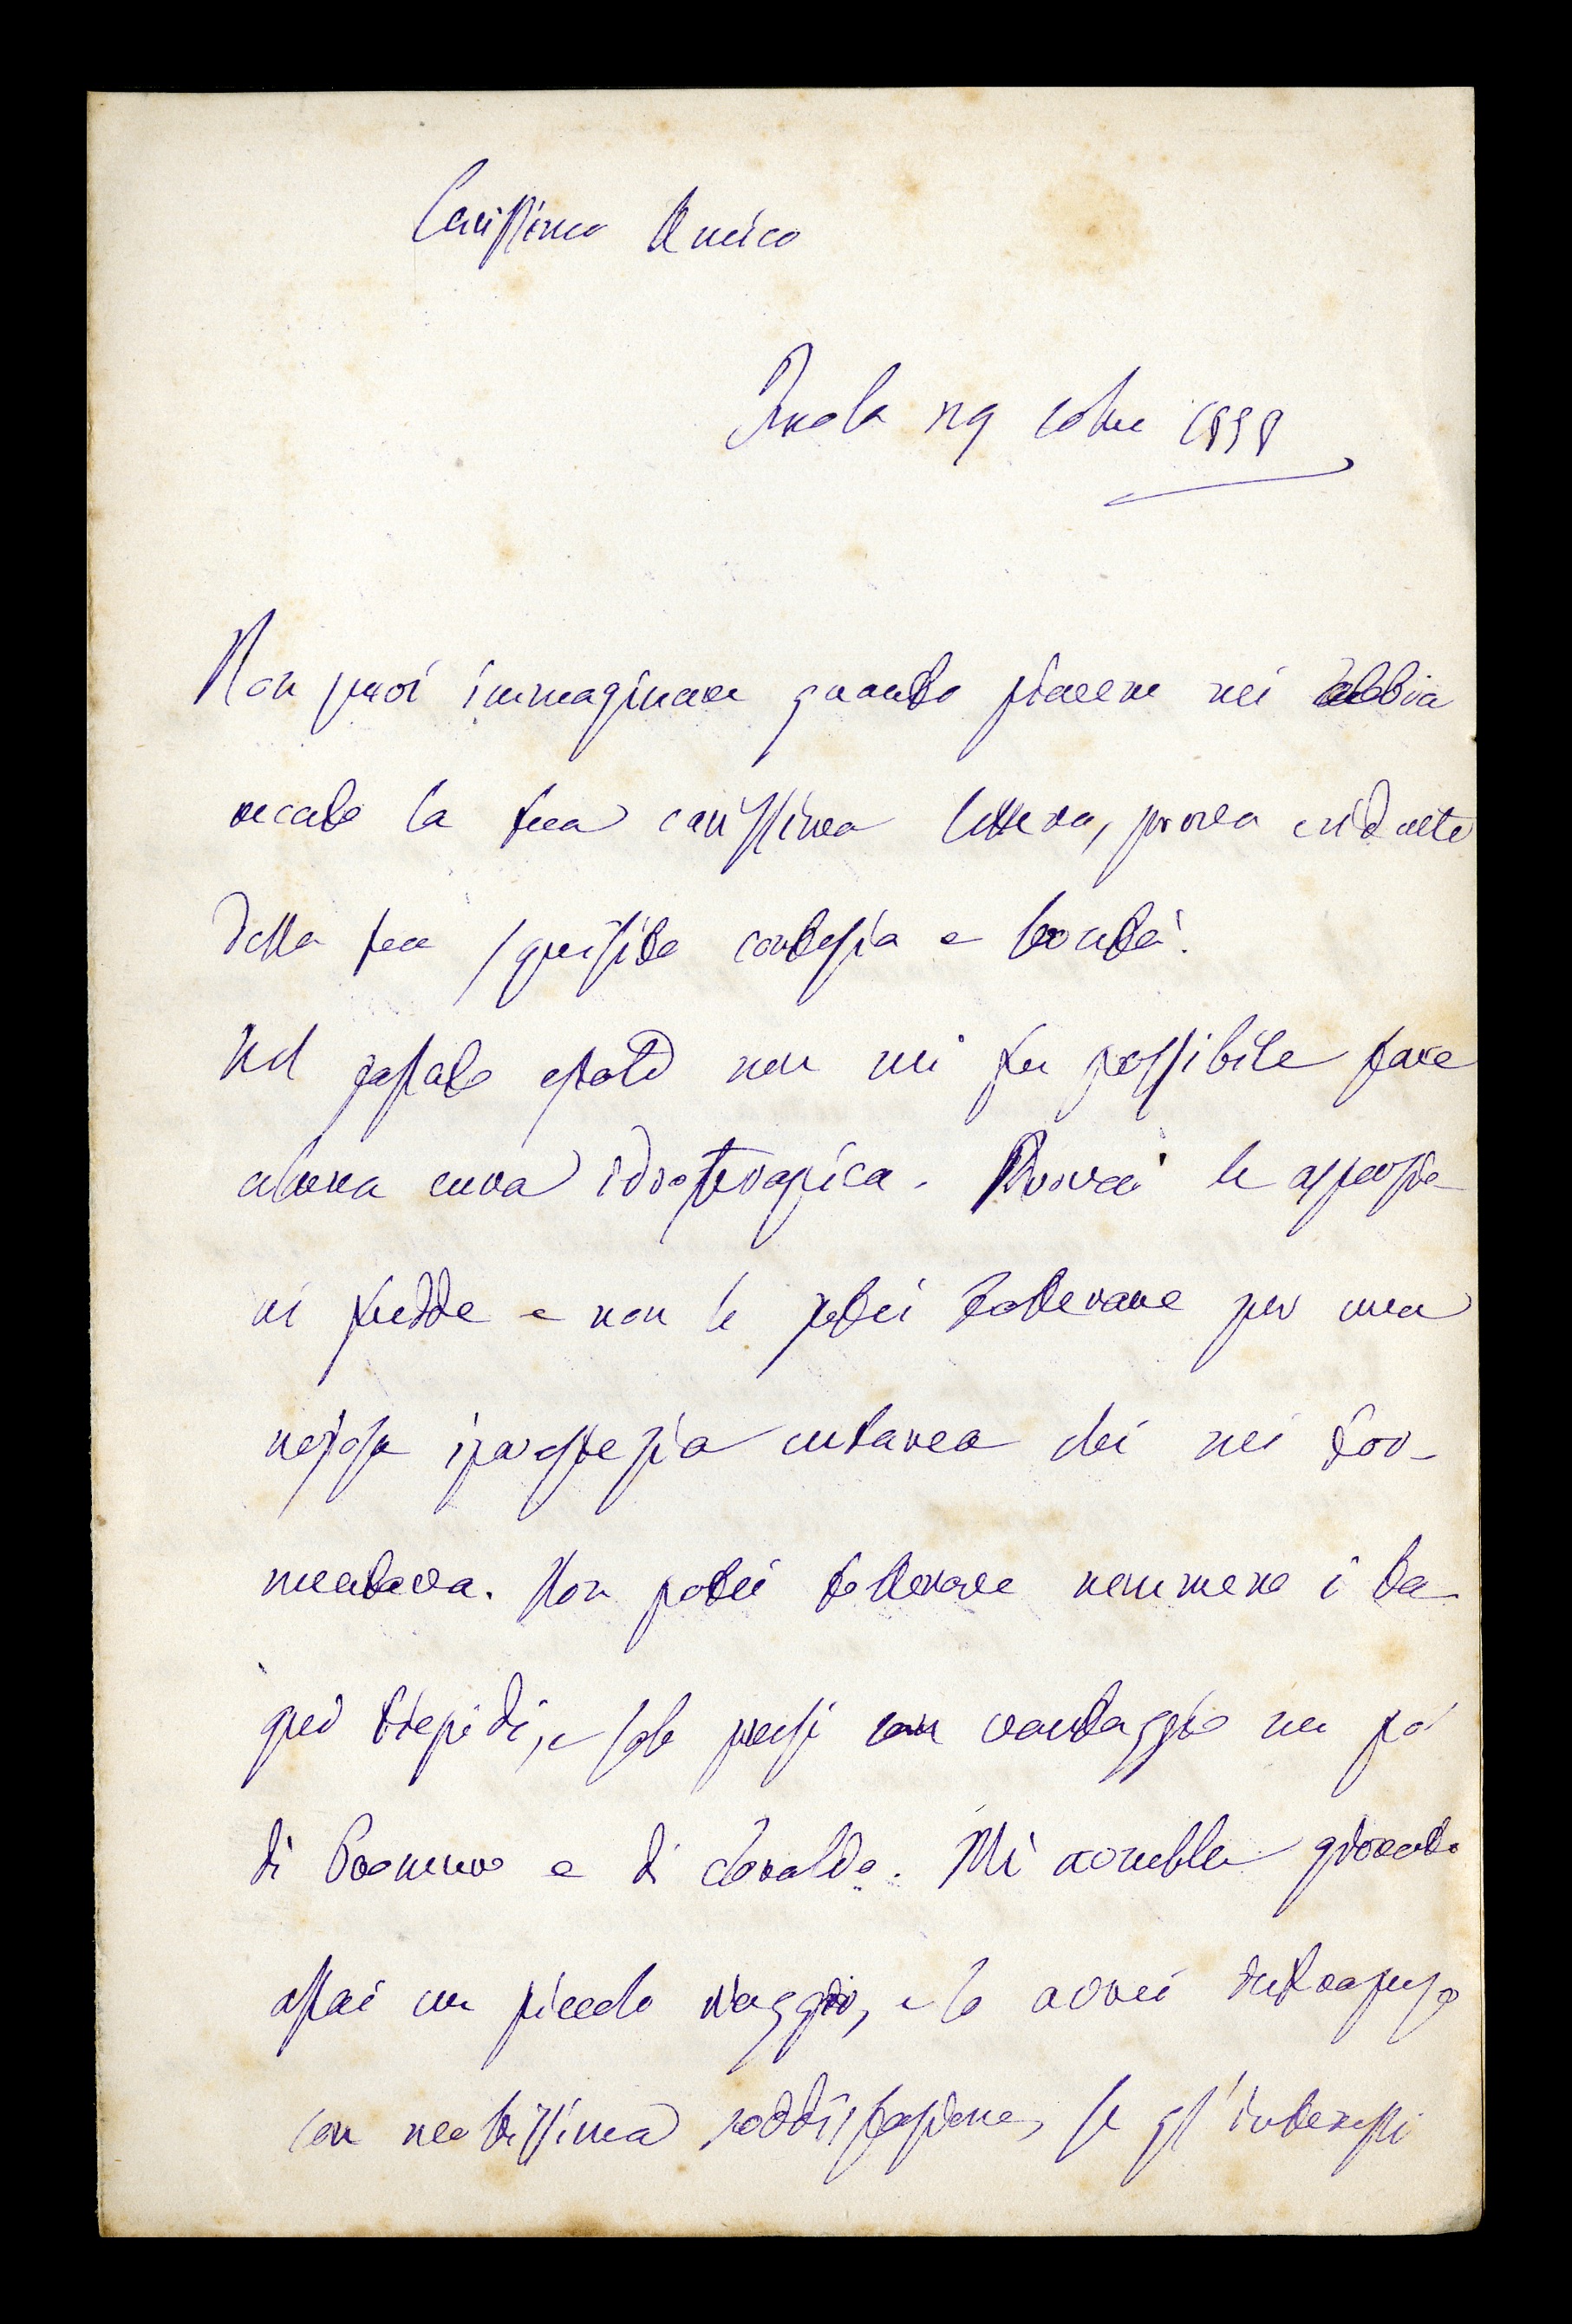 Carissimo Amico
Imola 1898
Non puoi immaginare quanto piacere mi abbia
recato la tua carissima lettera, prova evidente
della tua squisita cortesia e bontà.
Nel passato estate non mi fu possibile fare
alcuna cura idroterapica. Provai le aspersio-
ni fredde e non le potei tollerare per una
noiosa iperestesia cutanea che mi tor-
mentava. Non potei tollerare nemmeno i ba-
gni tiepidi, e solo presi con vantaggio un po'
di Bromuro e di cloralio. Mi avrebbe giovato
assai un piccolo viaggio, e lo avrei intrapreso
con moltissima soddisfazione, se gl'interessi